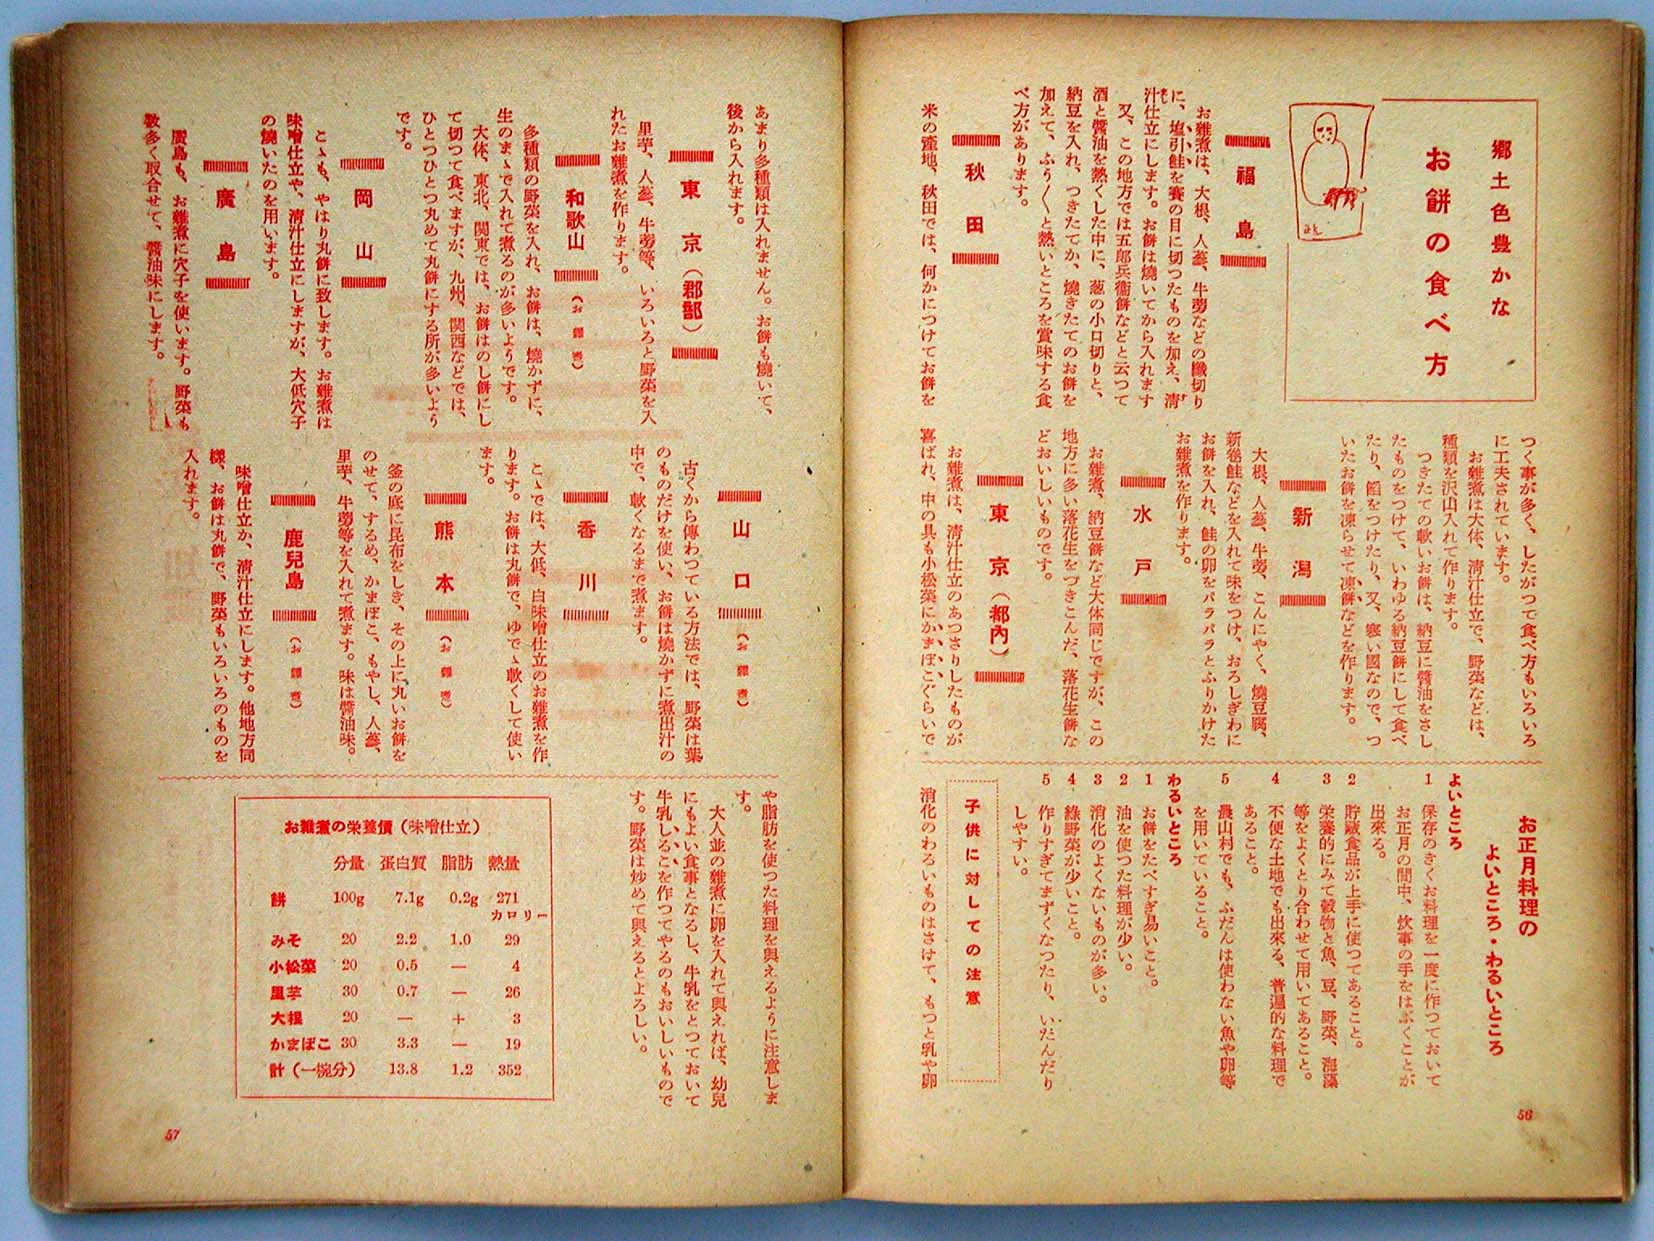 郷土色豊かな
お餅の食べ方
福島
お雑煮は、大根、人蔘、牛蒡などの纖切り
に、塩引鮭を賽の目に切つたものを加え、清
汁仕立にします。お餅は燒いてから入れます
又、この地方では五郎兵衞餅などと云つて
酒と醬油を熱くした中に、葱の小口切りと、
納豆を入れ、つきたてか、燒きたてのお餅を
加えて、ふり〱と熱いところを賞味する食
べ方があります。
秋田
米の產地、秋田では、何かにつけてお餅を
つく事が多く、したがつて食べ方もいろいろ
に工夫されています。
お雑煮は大体、清汁仕立で、野菜などは、
種類を沢山入れて作ります。
つきたての軟いお餅は、納豆に醬油をさし
たものをつけて、いわゆる納豆餅にして食べ
たり、餡をつけたり、又、寒い國なので、つ
いたお餅を凍らせて凍餅などを作ります。
新潟
大根、人蔘、牛蒡、こんにやく、燒豆腐、
新卷鮭などを入れて味をつけ、おろしぎわに
お餅を入れ、鮭の卵をパラパラとふりかけた
お雑煮を作ります。
水戸
お雑煮、納豆餅など大体同じですが、この
地方に多い落花生をつきこんだ、落花生餅な
どおいしいものです。
東京（都內）
お雑煮は、清汁仕立のあつさりしたものが
喜ばれ、中の具も小松菜にかまぼこぐらいで
お正月料理の
よいところ・わるいところ
よいところ
1 保存のきくお料理を一度に作つておいて
お正月の間中、炊事の手をはぶくことが
出來る。
2 貯藏食品が上手に使つてあること。
3 栄養的にみて穀物と魚、豆、野菜、海藻
等をよくとり合わせて用いてあること。
4 不便な土地でも出來る、普遍的な料理で
あること。
5 農山村でも、ふだんは使わない魚や卵等
を用いていること。
わるいところ
1 お餅をたべすぎ易いこと。
2 油を使つた料理が少い。
3 消化のよくないものが多い。
4 綠野菜が少いこと。
5 作りすぎてまずくなつたり、いたんだり
しやすい。
子供に対しての注意
消化のわるいものはさけて、もつと乳や卵
56
あまり多種類は入れません。お餅も燒いて、
後から入れます。
東京（郡部）
里芋、人蔘、牛蒡等、いろいろと野菜を入
れたお雑煮を作ります。
和歌山（お雑煮）
多種類の野菜を入れ、お餅は、燒かずに、
生のまゝで入れて煮るのが多いようです。
大体、東北、関東では、お餅はのし餅にし
て切つて食べますが、九州、関西などでは、
ひとつひとつ丸めて丸餅にする所が多いよう
です。
岡山
こゝも、やはり丸餅に致します。お雑煮は
味噌仕立や、清汁仕立にしますが、大低穴子
の燒いたのを用います。
廣島
廣島も、お雑煮に穴子を使います。野菜も
数多く取合せて、醬油味にします。
山口（お雑煮）
古くから傳わつている方法では、野菜は葉
のものだけを使い、お餅は燒かずに煮出汁の
中で、軟くなるまで煮ます。
香川
こゝでは、大低、白味噌仕立のお雑煮を作
ります。お餅は丸餅で、ゆでゝ軟くして使い
ます。
熊本（お雑煮）
釜の底に昆布をしき、その上に丸いお餅を
のせて、するめ、かまぼこ、もやし、人蔘、
里芋、牛蒡等を入れて煮ます。味は醬油味。
鹿兒島（お雑煮）
味噌仕立か、清汁仕立にします。他地方同
樣、お餅は丸餅で、野菜もいろいろのものを
入れます。
や脂肪を使つた料理を與えるように注意しま
す。
大人並の雜煮に卵を入れて與えれば、幼兒
にもよい食事となるし、牛乳をとつておいて
牛乳しるこを作つてやるのもおいしいもので
す。野菜は炒めて與えるとよろしい。
お雜煮の栄養價（味噌仕立）
分量 蛋白質 脂肪 熱量
餅 100g 7.1g 0.2g 271
カロリー
みそ 20 2.2 1.0 29
小松菜 20 0.5 — 4
里芋 30 0.7 — 26
大根 20 — + 3
かまぼこ 30 3.3 — 19
計（一椀分） 13.8 1.2 352
57